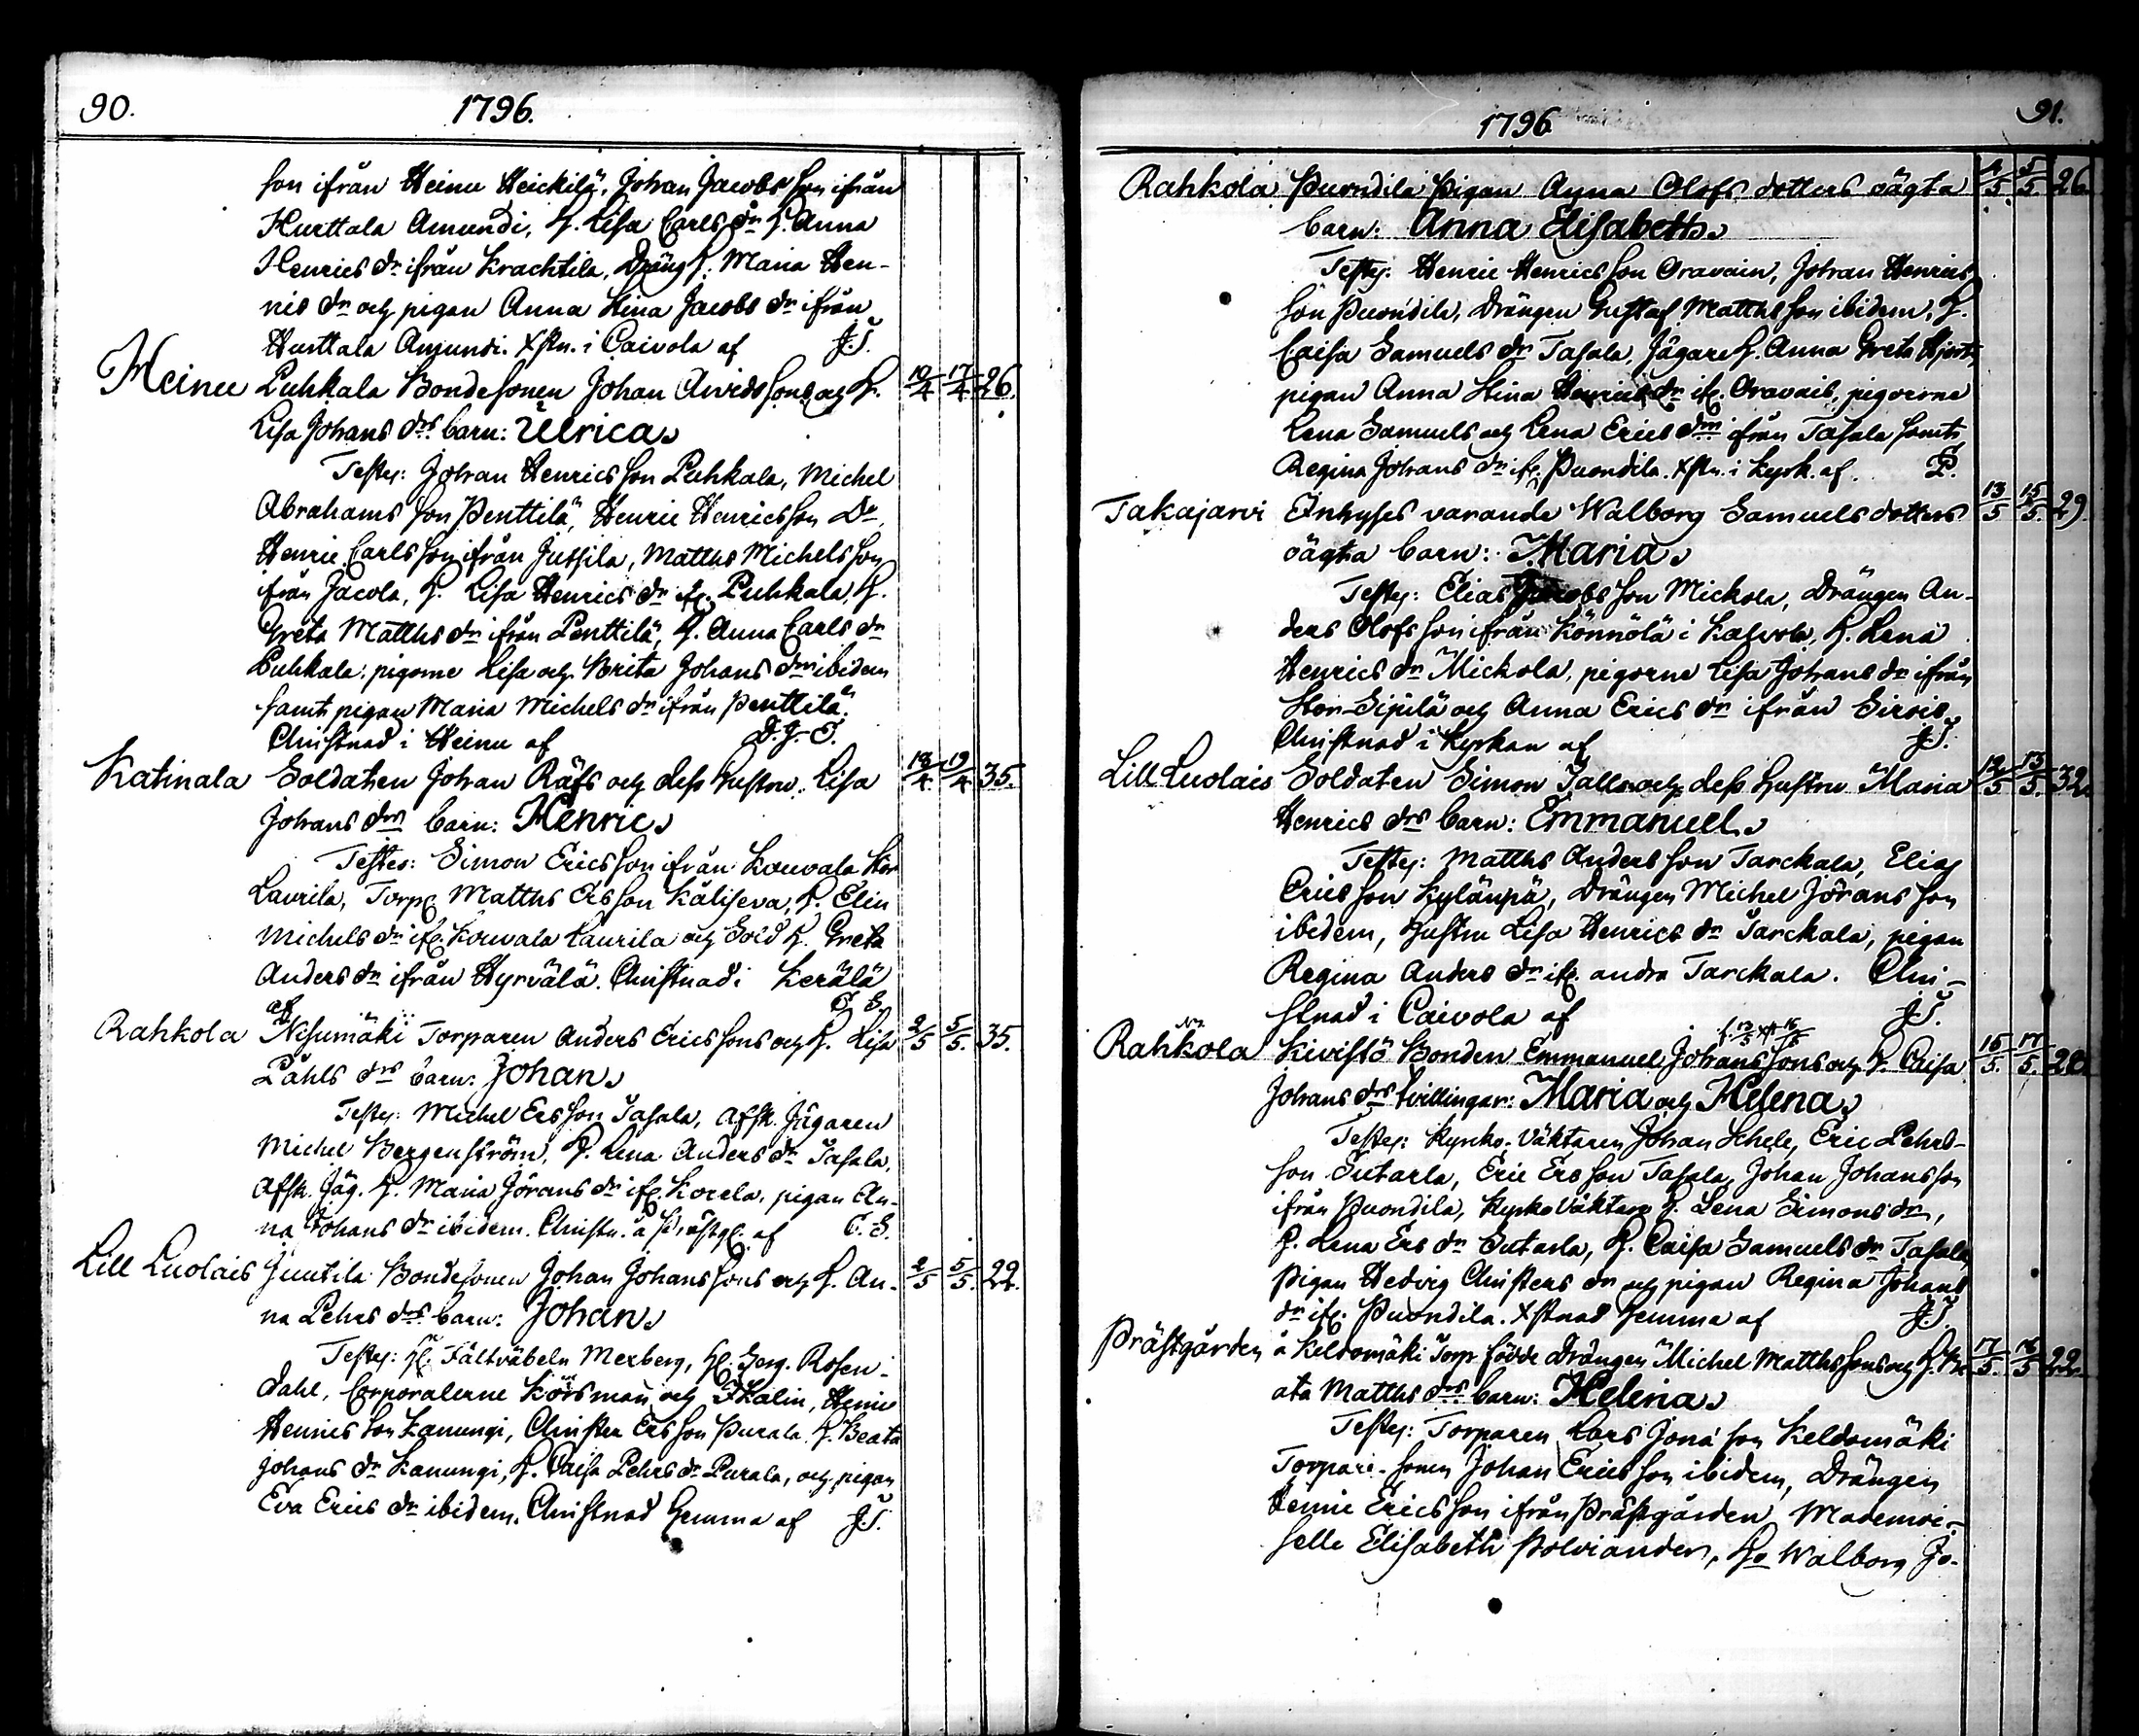 90. 1796.
son ifrån Heinu Heickilä, Johan Jacobs son ifrån
Hurttala Amundi, H. Lisa Carls dr H. Anna
Henrics dr ifrån Krachtila, Dräng H. Maria Hen-
rics dr och pigan Anna Stina Jacobs dr ifrån
Hurttala Amundi. Xstn. i Caivola af J.T.
Heinu Puhkala Bondesonen Johan Arvidssons och H. 10/4 17/4 26.
Lisa Johans drs barn: Ulrica
Testes: Johan Henrics son Puhkala, Michel
Abrahams son Penttilä, Henric Henricsson Do
Henric Carls son ifrån Jussila, Matths Michels son
ifrån Jacola, H. Lisa Henrics dr ifr. Puhkala, H.
Greta Matths dr ifrån Penttilä, H. Anna Carls dr
Puhkala, pigorne Lisa och Brita Johans drr ibidem
samt pigan Maria Michels dr ifrån Penttilä.
Christnad i Heinu af D.J.T.
Katinala Soldaten Johan Räfs och dess hustru Lisa 18/4 19/4 35.
Johans drs barn: Henric
Testes: Simon Erics son ifrån Kouvala Stor
Laurila, Torp. Matths Ersson Käliseva, H. Elin
Michels dr ifr. Kouvala Laurila och Sold H. Greta
Anders dr ifrån Hyrvälä. Christnad i Kerälä
af C.E.
Rahkola Nisumäki Torparen Anders Erics sons och H. Lisa 2/5 5/5. 35.
Påhls drs barn: Johan
Testes: Michel Ersson Tasala, Afsk. Jägaren
Michel Bergenström, H. Lena Anders dr Tasala,
Afsk. Jäg. H. Maria Jörans dr ifr. Korela, pigan An-
na Johans dr ibidem. Christn. å Prästg. af C.E.
Lill Luolais Juutila Bondesonen Johan Johans sons och H. An- 2/5 5/5. 22.
na Pehrs drs barn: Johan
Testes: Hr. Fältväbeln Merberg, Hr. Serg. Rosen-
dahl, Corporalerne Korsman och Stalin, Henric
Henrics son Kanungi, Christer Ersson Purala, H. Beata
Johans dr Kanungi, H. Caisa Pehrs dr Purala, och pigan
Eva Erics dr ibidem. Christnad hemma af J.T.
1796 91.
Rahkola Puondila Pigan Anna Olofs dotters oägta 4/5 5/5. 26.
barn: Anna Elisabeth
Testes: Henric Henrics son Oravain, Johan Henrics
son Puondila, Drängen Gustaf Matths son ibidem, H.
Caisa Samuels dr Tasala, Jägare H. Anna Greta Hjort,
pigan Anna Stina Henrics dr ifr. Oravais, pigorne
Lena Samuels och Lena Erics drr ifrån Tasala samt
Regina Johans dr ifr. Puondila. Xstn. i Kyrk. af P.
Takajarvi Inhyses varande Walborg Samuels dotters 13/5 15/5. 29.
oägta barn: Maria
Testes: Elias Jacobs son Mickola, Drängen An-
ders Olofs son ifrån Könnölä i Kalvola, H. Lena
Henrics dr Mickola, pigorne Lisa Johans dr ifrån
Stor-Sipilä och Anna Erics dr ifrån Sirois.
Christnad i Kyrkan af J.T.
Lill Luolais Soldaten Simon Talls och dess hustru Maria 12/5 13/5. 32
Henrics drs barn: Emmanuel
Testes: Matths Anders son Tarckala, Elias
Erics son Kylänpä, Drängen Michel Jörans son
ibidem, hustru Lisa Henrics dr Tarckala, pigan
Regina Anders dr ifr. andra Tarckala. Chri-
stnad i Caivola af J.T.
Rahkola Kivistö Bonden Emmanuel Johans sons och H. Caisa 15/5. 17/5. 28
Johans drs tvillingar: Maria och Helena
Testes: Kyrko-Väktaren Johan Schele, Eric Pehrs-
son Sutarla, Eric Ersson Tasala, Johan Johansson
ifrån Puondila, Kyrko Väktare H. Lena Simons dr,
H. Lena Ers dr Sutarla, H. Caisa Samuels dr Tasala,
Pigan Hedvig Christers dr och pigan Regina Johans
dr ifr. Puondila. Xstnad hemma af J.T.
Prästgården å Keldomäki Torp födde Drängen Michel Matths sons och H. Be- 17/5. 18/5 22
ata Matths drs barn: Helena
Testes: Torparen Lars Jona son Keldomäki
Torpare-sonen Johan Erics son ibidem, Drängen
Henric Ericsson ifrån Prästgården, Mademoi-
selle Elisabeth Polviander, H. Walborg Jo-